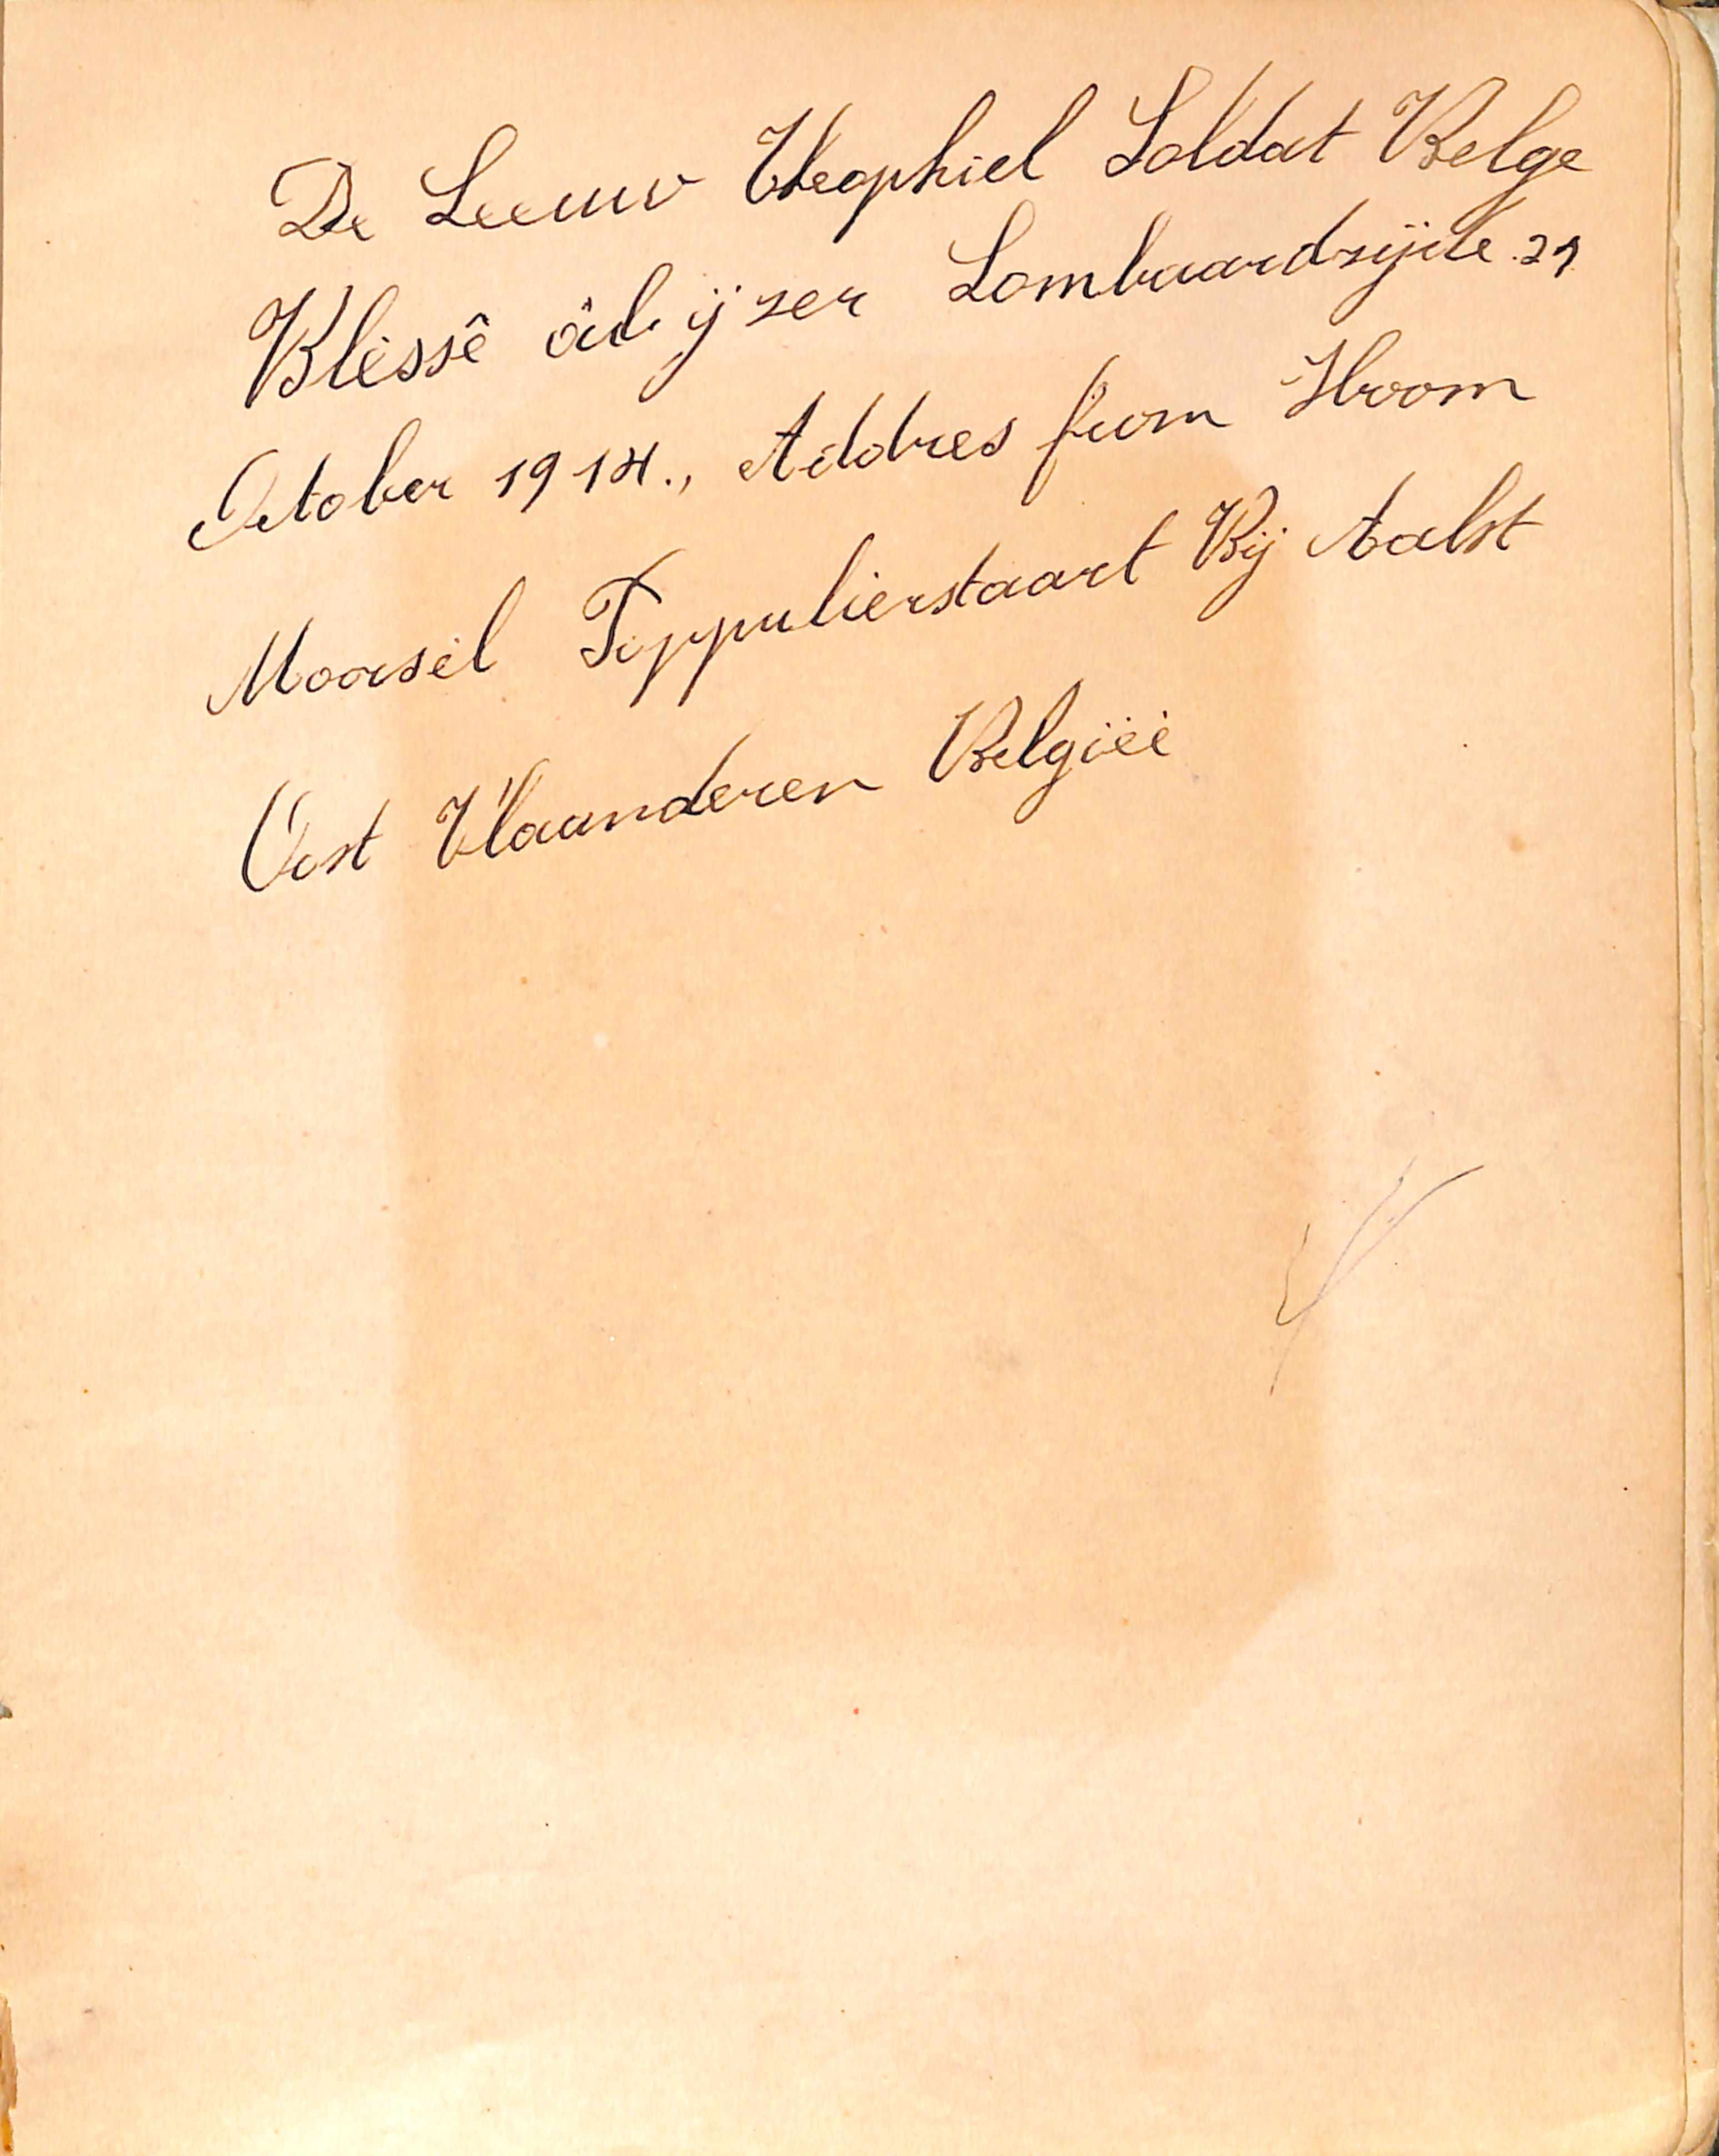 De Leeuw Theophiel Soldat Belge
Blèssê âd ijzer Lombaardzijde 21
October 1914., Addres from Hoom
Moorsel Foppulierstaart Bij Aalst
Oost Vlaanderen Belgiëe